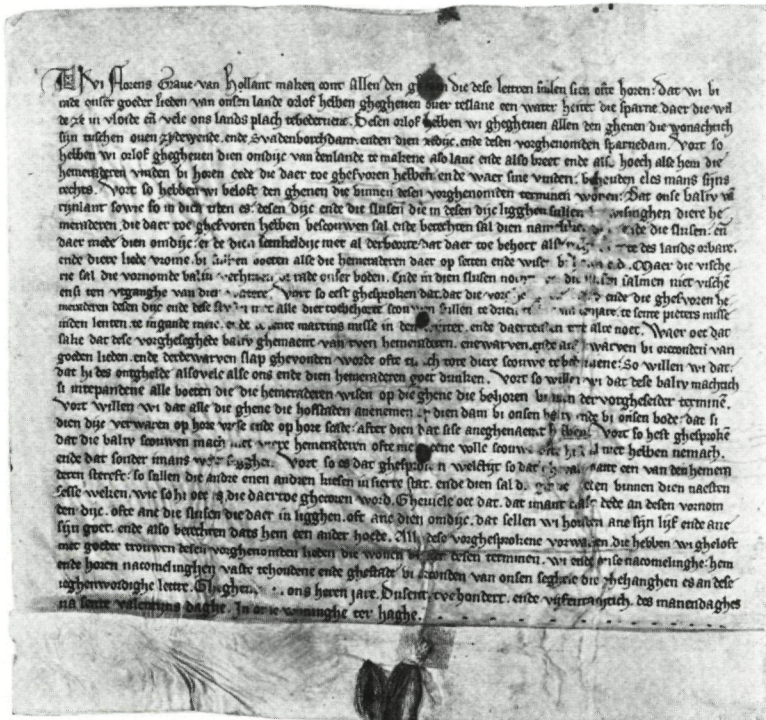 Wi florens Grave van hollant maken cont allen den ghenen die dese lettren sullen sien ofte horen: dat wi bi
rade onser goeder lieden van onsen lande orlof hebben ghegheven over teslane een water heitet die sparne daer die wil
de ze in vloide en vele ons lands plach tebedervene. Desen orlof hebben wi ghegheven allen den ghenen die wonachtich
sijn tuschen ende Svadenborchdam. enden dien zedijc. ende desen vorghenomden sparnedam. Vort so
hebben wi orlof ghegheven dien omdijc van denlande te makene also lanc ende also breet ende also hoech alse hem die
hemenraderen vinden bi horen eede die daer toe ghesvoren hebben. ende waer sine vinden. behouden elcs mans sijns
rechts. Vort so hebben wi beloft den ghenen die binnen desen vorghenomden terminen woren: Dat onse baliv van
rijnlant sowie so in dien tiden es: desen dijc ende die slusen die in desen dijc ligghen sullen diere he
menraderen. die daer toe ghesvoren hebben bescouwen sal ende berechten sal dien ende die slusen. en
daer mede dien omdijc. er de dien met al derboorte. dat daer toe behort te des lands orbare.
ende diere liede vrome. bi boeten alse die hemenraderen daer op setten ende wisen Maer die vische
rie sal die vornomde baliv rade onser boden. Ende in dien slusen die salmen niet vischen
ten utganghe van dien watere. Vort so eest ghesproken dat. dat die ende die ghesvoren he
menraderen desen dijc ende dese alle diere toebehoert scouwen sullen te drien jare. te sente pieters misse
inden lenten. te ingande meie. ende sente martins misse in den winter. ende daertusen alse noet. Waer oec dat
sake dat dese vorgheseghede baliv ghemaent van tven hemenraderen. enewarven. ende warven bi orconden van
goeden lieden. ende derdewarven slap ghevonden worde ofte diere scouwe te So willen wi dat:
dat hi des ontghelde alsovele alse ons ende dien hemenraderen goet dunken. Vort so willen wi dat dese baliv machtich
si intepandene alle boeten die die hemenraderen wisen op die ghene die behoren binnen der vorgheseider termine.
Vort willen wi dat alle die ghene die hofsladen annemen op dien dam bi onsen baliv ende bi onsen bode: dat si
dien dijc verwaren op hore ende op hore after dien dat sise hebben. Vort so hest ghesproken
dat die baliv scouwen mach met hemenraderen ofte wolle niet hebben nemach.
ende dat sonder Vort so es dat ghesproken welctijt so dat een van den hemen
deren sterft: so sullen die andre enen andren kiesen in sierre stat. ende dien sal binnen dien naesten
sesse weken. wie so hi oec es die daertoe ghecoren word. Ghevielt oec dat. dat imant dede an desen vornom
den dijc. ofte ane die slusen die daer in ligghen. oft ane dien omdijc. dat sellen wi houden ane sijn lijf ende ane
sijn goet. ende also berechten dats hem een ander hoede. All dese vorghesprokene vorwarden. die hebben wi gheloft
met goeder trouwen desen vorghenomden lieden die wonen binnen desen termine. wi ende onse nacomelinghe: hem
ende horen nacomelinghen vaste tehoudene ende ghestade bi orconden van onsen seghele die ghehanghen es an dese
ieghenwordighe lettre. Ghegheven ons heren jare. Dusent. tvehondert. ende vijfentachtich. des manendaghes
na sente valentijns daghe. In onse woninghe ter haghe.